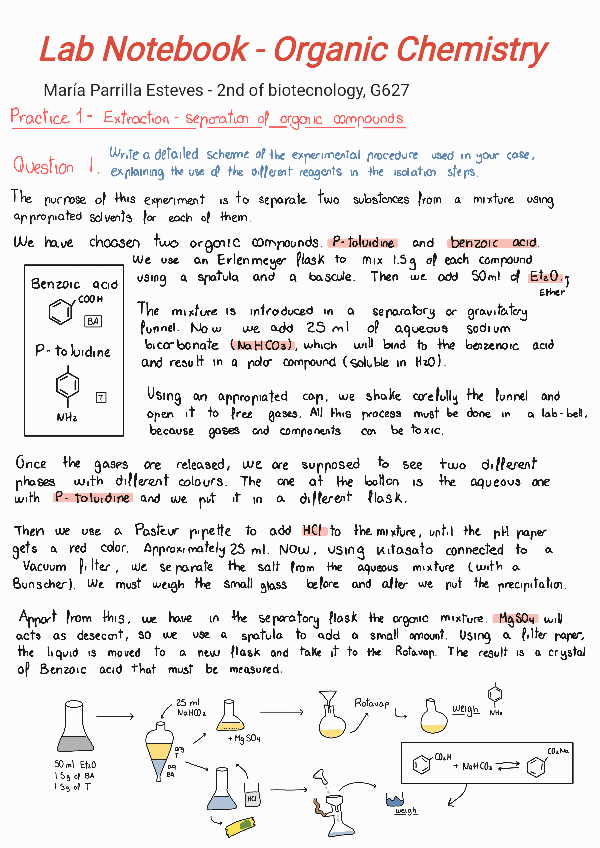 Lab Notebook - Organic Chemistry
María Parrilla Esteves - 2nd of biotecnology, G627
Practice 1 - Extraction - separation of organic compounds
Question 1.
Write a detailed scheme of the experimental procedure used in your case,
explaining the use of the different reagents in the isolation steps.
The purpose of this experiment is to separate two substances from a mixture using
appropiated solvents for each of them.
We have choosen two organic compounds. P-toluidine and benzoic acid.
We use an Erlenmeyer flask to mix 1.5g of each compound
using a spatula and a bascule. Then we add 50ml of Et₂O.
Ether
Benzoic acid
COOH
BA
P-toluidine
T
NH₂
The mixture is introduced in a separatory or gravitatory
funnel. Now we add 25 ml of aqueous sodium
bicarbonate (NaHCO₃), which will bind to the benzenoic acid
and result in a polar compound (soluble in H₂O).
Using an appropiated cap, we shake carefully the funnel and
open it to free gases. All this process must be done in a lab-bell,
because gases and components can be toxic.
Once the gases are released, we are supposed to see two different
phases with different colours. The one at the botton is the aqueous one
with P-toluidine and we put it in a different flask.
Then we use a Pasteur pipette to add HCl to the mixture, until the pH paper
gets a red color. Approximately 25 ml. Now, using kitasato connected to a
Vacuum filter, we separate the salt from the aqueous mixture (with a
Bunscher). We must weigh the small glass before and after we put the precipitation.
Apport from this, we have in the separatory flask the organic mixture. MgSO₄ will
acts as desecant, so we use a spatula to add a small amount. Using a filter paper,
the liquid is moved to a new flask and take it to the Rotavap. The result is a crystal
of Benzoic acid that must be measured.
50ml Et₂O
1.5g of BA
1.5g of T
25 ml
NaHCO₃
org
T
aq
BA
+ MgSO₄
Rotavap
weigh
NH₂
HCl
weigh
CO₂H
+ NaHCO₃
CO₂Na